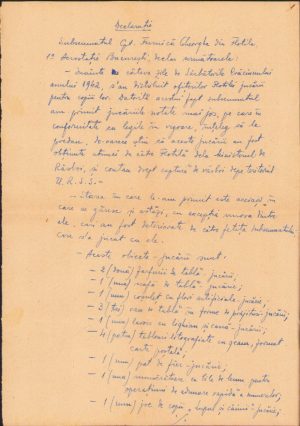 Declarație
Subsemnatul Cpt. Furnică Gheorghe din Flotila
1ª Aerostație București, declar următoarele:
– Înainte de câteva zile de Sărbătorile Crăciunului
anului 1942, s'au distribuit ofițerilor Flotilei jucării
pentru copiii lor. Datorită acestui fapt subsemnatul
am primit jucăriile notate mai jos, pe care în
conformitate cu legile în vigoare, înțeleg să le
predau, de-oarece știu că aceste jucării au fost
obținute atunci de către Flotilă dela Ministerul de
Război, și contau drept captură de război depe teritoriul
U.R.S.S. –
– Starea în care le-am primit este aceeași în
care se găsesc și astăzi, cu excepția unora dintre
ele, cari au fost deteriorate de către fetița subsemnatului,
care s'a jucat cu ele.
– Aceste obiecte-jucării sunt:
– 2 (două) farfurii de tablă - jucării;
– 1 (una) ceașcă de tablă - jucărie;
– 1 (un) coșuleț cu flori artificiale - jucărie;
– 3 (trei) de tablă în forme de prăjituri - jucării;
– 1 (un) lavoir cu lighean și cană - jucării;
– 4 (patru) tablouri litografiate cu geam, format
carte poștală;
– 1 (un) pat de fier - jucărie;
– 1 (una) numărătoare cu bile de lemn pentru
operațiuni de adunare rapidă a numerelor;
– 1 (un) joc de copii „lupul și câinii" - jucărie;